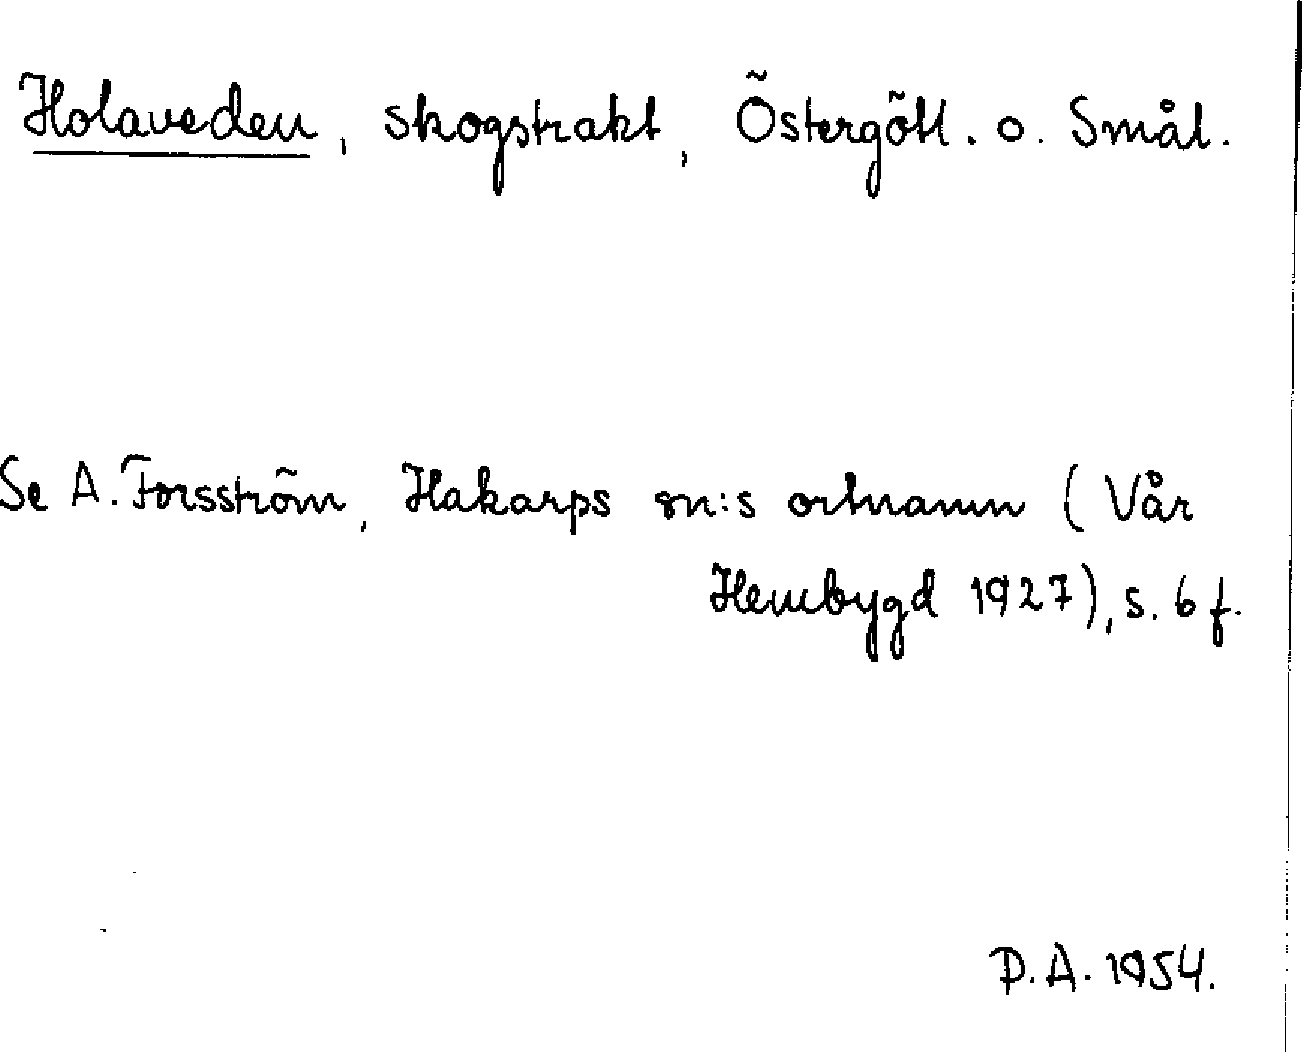 Holaveden, skogstrakt, Östergötl. o. Smål.
Se A. Forsström, Hakarps sn:s ortnamn (Vår
Hembygd 1927), s. 6 f.
P.A. 1954.